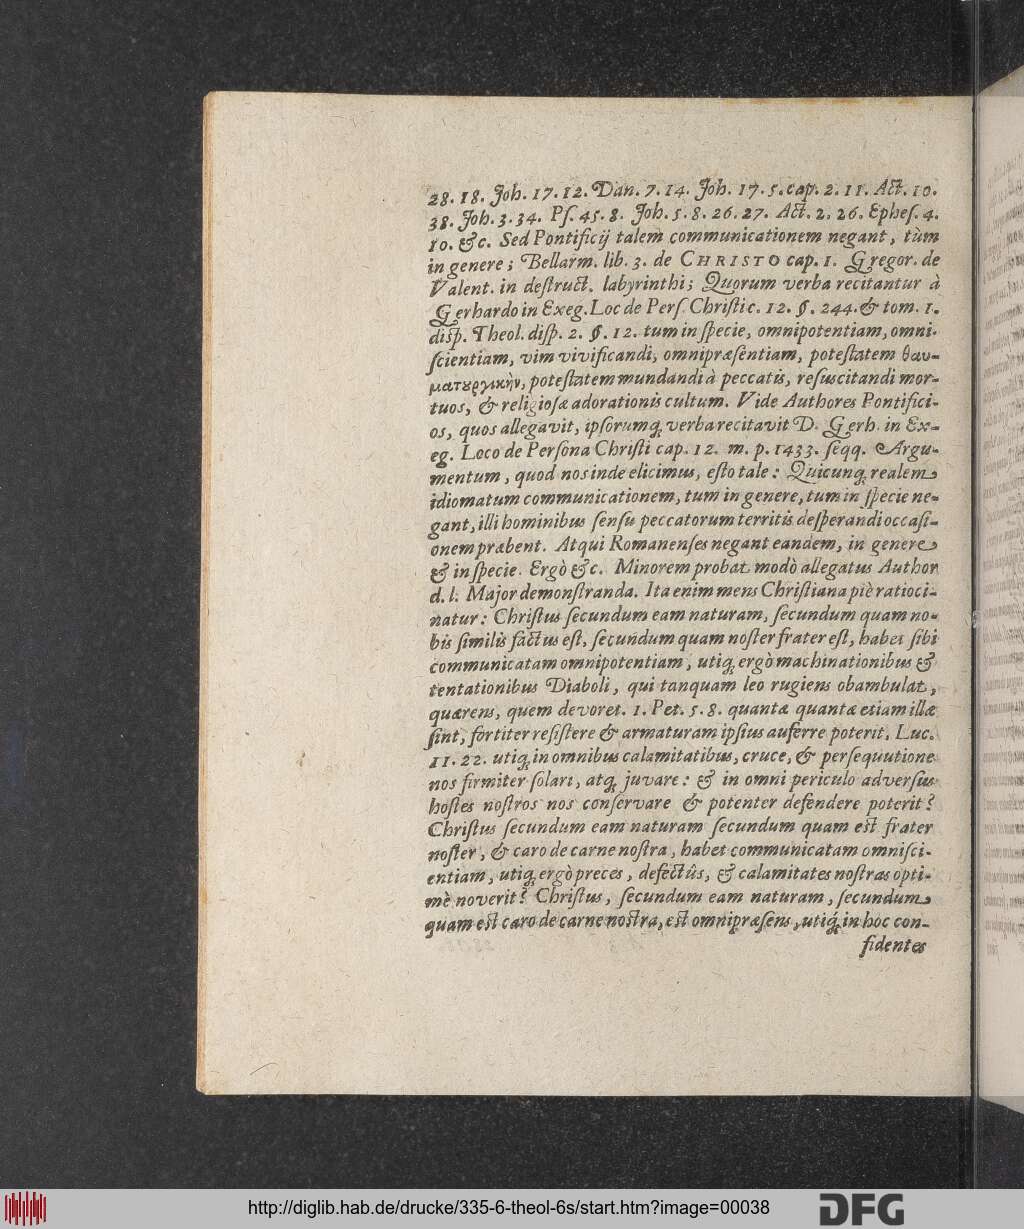 28. 18. Joh. 17. 12. Dan. 7. 14. Joh. 17. 5. cap. 2. 11. Act. 10.
38. Joh. 3. 34. Pſ. 45. 8. Joh. 5. 8. 26. 27. Act. 2. 26. Epheſ. 4.
10. &c. Sed Pontificij talem communicationem negant, tùm
in genere; Bellarm. lib. 3. de CHRISTO cap. 1. Gregor. de
Valent. in deſtruct. labyrinthi; Quorum verba recitantur à
Gerhardo in Exeg. Loc de Perſ. Chriſti c. 12. §. 244. & tom. 1.
diſp. Theol. diſp. 2. §. 12. tum in ſpecie, omnipotentiam, omni-
ſcientiam, vim vivificandi, omnipræſentiam, poteſtatem θαυ-
ματȣργικὴν, poteſtatem mundandi à peccatis, reſuscitandi mor-
tuos, & religioſæ adorationis cultum. Vide Authores Pontifici-
os, quos allegavit, ipſorumq́ verba recitavit D. Gerh. in Ex-
eg. Loco de Perſona Chriſti cap. 12. m. p. 1433. ſeqq. Argu-
mentum, quod nos inde elicimus, eſto tale: Quicunq́ realem
idiomatum communicationem, tum in genere, tum in ſpecie ne-
gant, illi hominibus ſenſu peccatorum territis deſperandi occaſi-
onem præbent. Atqui Romanenſes negant eandem, in genere
& in ſpecie. Ergò &c. Minorem probat modò allegatus Author
d. l. Major demonſtranda. Ita enim mens Chriſtiana piè ratioci-
natur: Chriſtus ſecundum eam naturam, ſecundum quam no-
bis ſimilis factus eſt, ſecundum quam noſter frater eſt, habet ſibi
communicatam omnipotentiam, utiq́ ergò machinationibus &
tentationibus Diaboli, qui tanquam leo rugiens obambulat,
quærens, quem devoret. 1. Pet. 5. 8. quantæ quantæ etiam illæ
ſint, fortiter reſiſtere & armaturam ipſius auferre poterit. Luc.
11. 22. utiq́ in omnibus calamitatibus, cruce, & perſequutione
nos firmiter ſolari, atq́ juvare: & in omni periculo adverſus
hoſtes noſtros nos conſervare & potenter defendere poterit?
Chriſtus ſecundum eam naturam ſecundum quam eſt frater
noſter, & caro de carne noſtra, habet communicatam omniſci-
entiam, utiq́ ergò preces, defectus, & calamitates noſtras opti-
mè noverit? Chriſtus, ſecundum eam naturam, ſecundum
quam eſt caro de carne noſtra, eſt omnipræſens, utiq́ in hoc con-
fidentes
http://diglib.hab.de/drucke/335-6-theol-6s/start.htm?image=00038
DFG